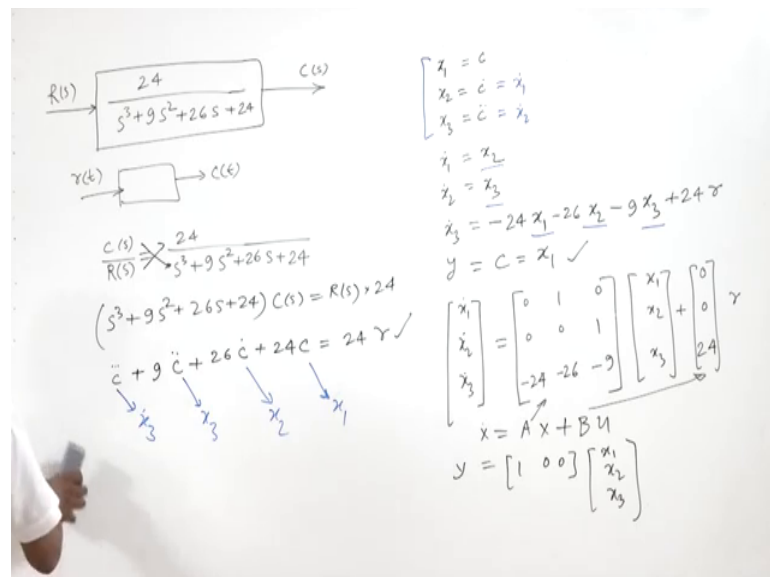 R(s) 24 / s³+9s²+26s+24 C(s)
r(t) → C(t)
C(s)/R(s) = 24 / s³+9s²+26s+24
(s³+9s²+26s+24) C(s) = R(s) × 24
c⃛ + 9 c̈ + 26 ċ + 24C = 24 r ✓
ẋ₃ x₃ x₂ x₁
x₁ = c
x₂ = ċ = ẋ₁
x₃ = c̈ = ẋ₂
ẋ₁ = x₂
ẋ₂ = x₃
ẋ₃ = -24 x₁ -26 x₂ - 9 x₃ + 24 r
y = c = x₁ ✓
[ẋ₁ ẋ₂ ẋ₃] = [0 1 0 0 0 1 -24 -26 -9] [x₁ x₂ x₃] + [0 0 24] r
ẋ = A x + B u
y = [1 0 0] [x₁ x₂ x₃]